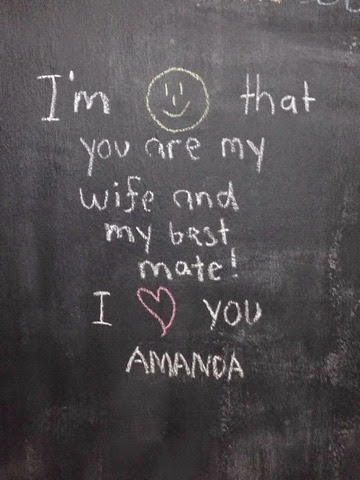 I'm 🙂 that
you are my
wife and
my best
mate!
I ♡ you
AMANDA